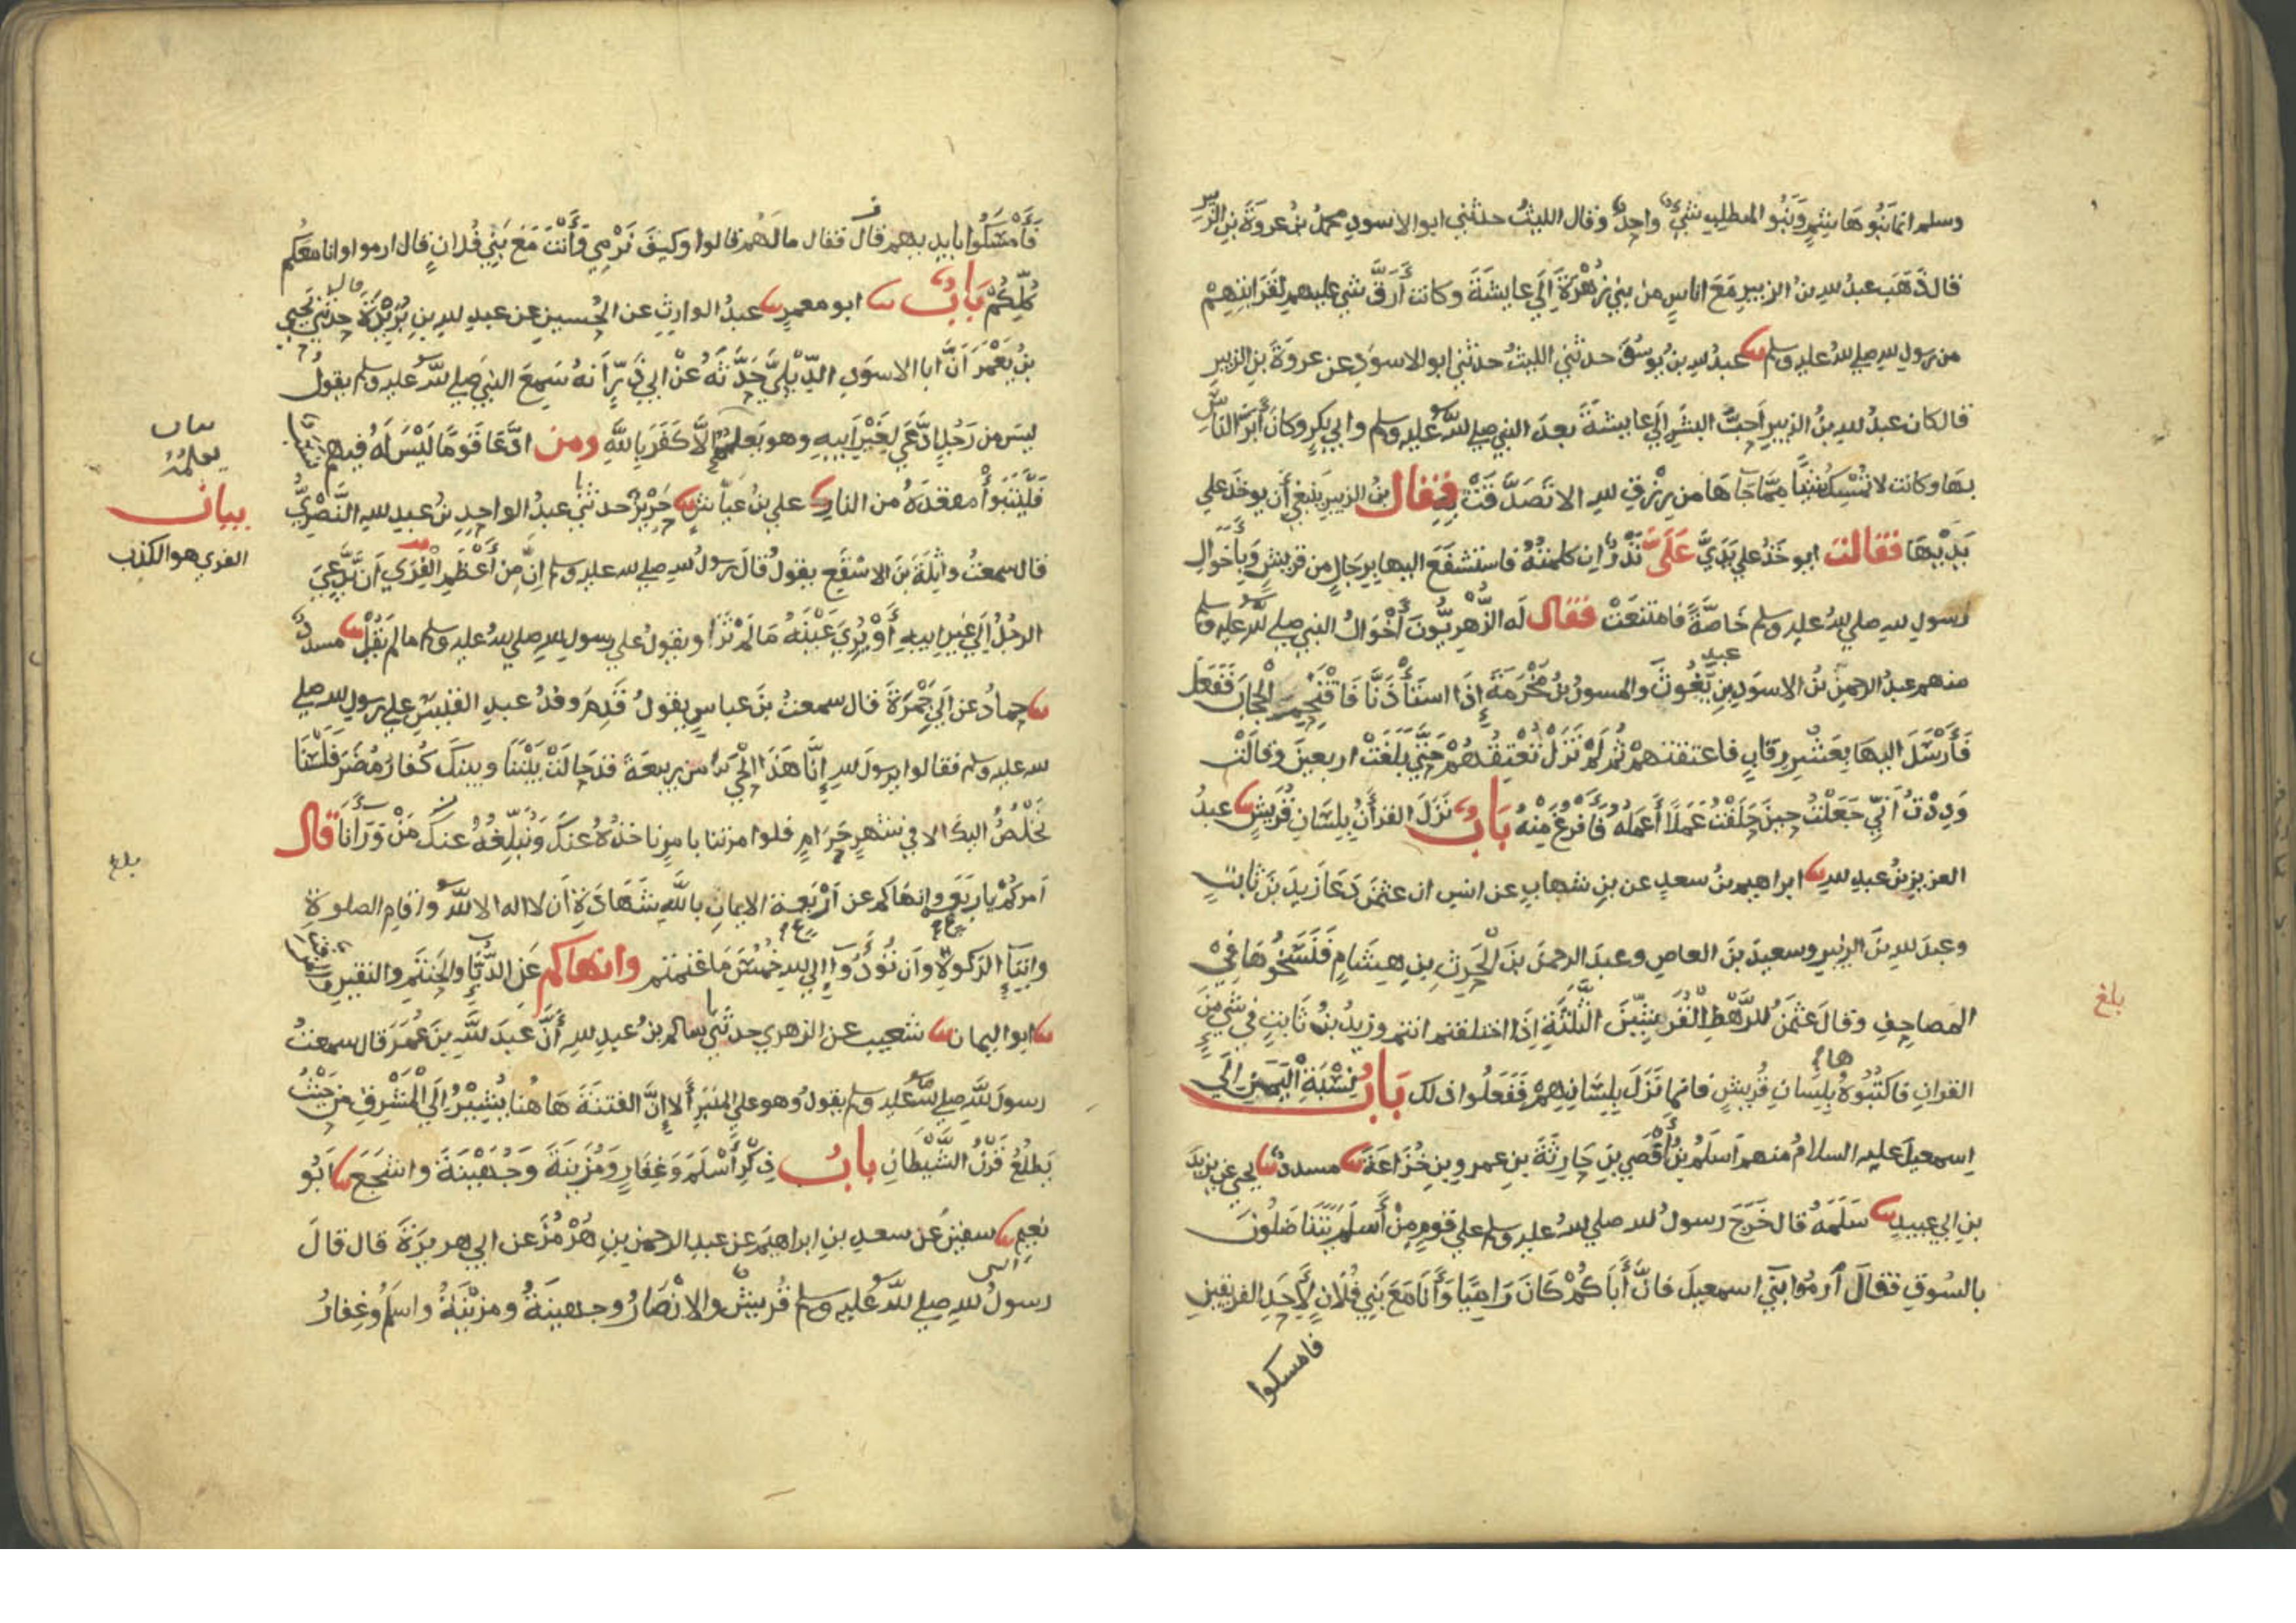 وسلم انما بَنُو هَاشِمٍ وَبَنُو المطلب شَيْءٌ واحِدٌ وقال الليثُ حدثني ابو الاسودِ محمدُ بنُ عروَةَ بنِ الزُبَيرِ
قال ذَهَبَ عبدُ للهِ بنُ الزبيرِ مَعَ اناسٍ من بني زُهْرَةَ إِلَي عايشَةَ وكانت أَرَقَّ شي عليهم لِقَرَابتِهِمْ
من رسول للهِ صلي للهُ عليه وسلم ثنا عبدُ للهِ بنُ يوسُفَ حدثني الليثُ حدثني ابو الاسوَدِ عن عروَةَ بنِ الزبيرِ
قال كان عبدُ للهِ بنُ الزبيرِ أحبَّ البشَرِ إِلَي عايشَةَ بعدَ النبي صلي للهُ عليهِ وسلم وابي بكرٍ وكانَ أَبَرَّ الناسِ
بهَا وكانت لا تُمْسِكُ شَيْئًا مِمَّا جَآهَا من رِزْقِ للهِ الا تَصَدَّقَتْ بِهِ فقال بنُ الزبيرِ ينبغي أن يوخَذَ علي
يَدَيْهَا فقالت ايوخَذُ علي يَدَيَّ عَلَيَّ نَذْرٌ ان كلمتُهُ فاستشفَعَ اليها بِرِجَالٍ من قريشٍ وَبِأَخْوَالِ
رَسولِ للهِ صلي للهُ عليهِ وسلم خَاصَّةً فامتنعَتْ فقال لَه الزُّهْرِيُّونَ أَخْوَالُ النبي صلي للهُ عليهِ وسلم
منهم عبدُ الرحمنِ بنُ الاسوَدِ بنِ عبدِ يَغُوثَ والمسورُ بنُ مَخْرَمَةَ إِذَا استَأْذَنَّا فَاقْتَحِمِ الْحِجَابَ فَفَعَلَ
فَأَرْسَلَ اليهَا بِعَشْرِ رِقابٍ فاعتقتهمْ ثُمَّ لَمْ تَزَلْ تُعْتِقُهُمْ حَتَّي بَلَغَتْ اربعينَ وقالَتْ
وَدِدْتُ أَنِّي جَعَلْتُ حِينَ حَلَفْتُ عَمَلًا أَعمَلُهُ فَأَفْرُغَ مِنْهُ بَابٌ نَزَلَ القرآنُ بِلِسَانِ قُرَيشٍ ثنا عبدُ
العزيزِ بنُ عبدِ للهِ ثنا ابراهيم بنُ سعدٍ عن بنِ شهابٍ عن انسٍ ان عثمنَ دَعَا زيدَ بنَ ثابتٍ
وعبدَ للهِ بنَ الزبيرِ وسعيدَ بنَ العاصِ وعبدَ الرحمنِ بنَ الْحَرِثِ بنِ هِشَامٍ فَنَسَخُوهَا فِي
المصاحِفِ وقالَ عثمَنُ لِلرَّهْطِ الْقُرَشِيِّينَ الثَّلثَةِ إِذَا اختلفتم انتم وزيدُ بنُ ثَابتٍ في شيءٍ مِنَ
القرانِ فاكتُبُوهُ بِلِسَانِ قُرَيشٍ فانما نَزَلَ بِلِسَانِهِمْ فَفَعَلُوا ذلك بَابُ نِسْبَةِ الْيَمَنِ إِلَي
اِسمعيلَ عليه السلامُ منهم اَسلَمُ بنُ أَفْصَي بنِ حَارِثَةَ بنِ عمرِو بنِ خُزَاعَةَ ثنا مسددٌ ثنا يحيي عن يزيدَ
بنِ ابي عبيدٍ ثنا سَلَمَهُ قال خَرَجَ رسولُ للهِ صلي للهُ عليهِ وسلم علي قومٍ مِنْ أَسلَمَ يَتَنَاضَلُونَ
بالسُوقِ فقالَ ارمُوا بَنِي اسمعيلَ فانَّ أَبَاكُمْ كَانَ رَامِيًا وَأَنَا مَعَ بَنِي فُلَانٍ لِأَحَدِ الفريقينِ
فامسكوا
بلغ
فَأَمْسَكُوا بايديهم قال فقال مالَهُم قالوا وكيفَ نَرْمِي وَأَنْتَ مَعَ بَنِي فُلَانٍ قال ارموا وانا معَكُم
كُلِّكُمْ بَابٌ ثنا ابو معمرٍ ثنا عبدُ الوارثِ عن الحُسينِ عن عبدِ للهِ بنِ بُرَيْدَةَ قال حدثني يَحْيَي
بنُ يَعْمَرَ أَنَّ ابا الاسوَدِ الدِّيْلِيَّ حَدَّثَهُ عنْ ابي ذَرٍّ أَنهُ سَمِعَ النبيَ صلي للهُ عليهِ وسلم يقولُ
ليسَ من رَجُلٍ ادَّعَي لِغَيْرِ اَبِيهِ وهو يَعلمُهُ إلاَّ كَفَرَ بِاللَّهِ ومن ادَّعَا قَومًا لَيْسَ لَهُ فيهم
فَلْيَتَبَوأْ مقعَدَهُ من النارِ ثنا علي بنُ عيَّاشٍ ثنا حَرِيزٌ حدثني عبدُ الواحِدِ بنُ عبيدِ للهِ النَّصْرِيُّ
قال سمعتُ واثِلَةَ بنَ الاسقَعِ يقولُ قالَ رسولُ للهِ صلي لله عليهِ وسلم إِنَّ مِنْ أَعْظَمِ الْفِرَي أَن يَدَّعِيَ
الرجُلُ إِلَي غيرِ ابيهِ أَوْ يُرِيَ عَيْنَهُ مَا لَمْ تَرَا ويقولُ علي رسولِ للهِ صلي للهُ عليهِ وسلم ما لم يَقُلْ ثنا مسددٌ
ثنا حمادٌ عن اَبِي جَمْرَةَ قال سمعتُ بنَ عباسٍ يقولُ قَدِمَ وفدُ عبدِ القَيسِ علي رسولِ لله صلي
لله عليهِ وسلم فقالوا يرسولَ للهِ إِنَّا هَذَا الْحَيَّ من ربيعَةَ قد حالَتْ بَيْنَنَا وبينَكَ كُفارُ مُضَرَ فَلَسْنَا
نَخْلُصُ اليكَ الا في شهرٍ حَرَامٍ فلوا مرتنا بامرٍ ناخذُهُ عنكَ وَنُبَلِّغُهُ عنكَ مَنْ وَرَآنَا قال
آمركُمْ باربَعٍ وانهَاكم عن أَرْبَعةٍ الايمانِ بِاللَّهِ شَهَادَةِ أَن لا اله الا للهُ واقامِ الصلوةِ
وايتَآءِ الزكوةِ وأن تُؤَدُّوا الي للهِ خُمُسَ مَا غَنِمْتم وانهاكم عَنِ الدُّبَّاءِ والحَنتَمِ والنقيرِ
ثنا ابو اليمان ثنا شعيبٌ عن الزهري حدثني سالم بنُ عبدِ للهِ أَنَّ عبدَ للَّهِ بنَ عُمَرَ قال سمعتُ
رسولَ للَّهِ صلي للهُ عليهِ وسلم يقولُ وهو علي المنبَرِ أَلا إِنَّ الفتنَةَ هَاهُنَا يُشِيْرُ إِلَي الْمَشْرِقِ من حَيْثُ
يَطلُعُ قَرْنُ الشَّيْطَانِ بابُ ذِكْرِ أَسْلَمَ وَغِفَارٍ وَمُزَيْنَةَ وَجُهَيْنَةَ واشجَعَ ثنا اَبُو
نعيمٍ ثنا سفينُ عن سعدِ بنِ ابراهيمَ عن عبدِ الرحمنِ بنِ هُرْمُزَ عن ابي هريرَةَ قال قالَ
رسولُ للهِ صلي للهُ عليهِ وسلم قُريشٌ والانْصَارُ وجهينةُ ومزَيْنَةُ واسلَمُ وغِفَارُ
بيان
يعلمُهُ
بيان
الفري هو الكذب
بلغ